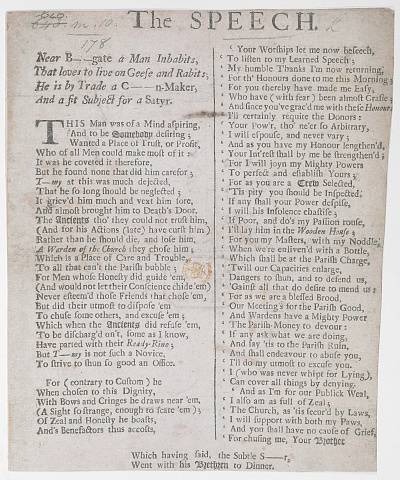 The SPEECH.
m. 10.
178
Near B---gate a Man Inhabits,
That loves to live on Geese and Rabits;
He is by Trade a C----n-Maker,
And a fit Subject for a Satyr.
THIS Man was of a Mind aspiring,
And to be Somebody desiring;
Wanted a Place of Trust, or Profit,
Who of all Men could make most of it:
It was he coveted it therefore,
But he found none that did him care for;
T—my at this was much dejected,
That he so long should be neglected;
It griev'd him much and vext him sore,
And almost brought him to Death's Door.
The Ancients tho' they could not trust him,
(And for his Actions (late) have curst him)
Rather than he should die, and lose him,
A Warden of the Church they chose him;
Which is a Place of Care and Trouble,
To all that can't the Parish bubble;
For Men whose Honesty did guide 'em,
(And would not let their Conscience chide 'em)
Never esteem'd those Friends that chose 'em,
But did their utmost to dispose 'em
To chuse some others, and excuse 'em;
Which when the Ancients did refuse 'em,
To be discharg'd on't, some as I know,
Have parted with their Ready-Rino;
But T—my is not such a Novice,
To strive to shun so good an Office.
For (contrary to Custom) he
When chosen to this Dignity,
With Bows and Cringes he draws near 'em,
(A Sight so strange, enough to scare 'em);
Of Zeal and Honesty he boasts,
And's Benefactors thus accosts,
‘ Your Worships let me now beseech,
‘ To listen to my Learned Speech;
‘ My humble Thanks I'm now returning,
‘ For th' Honours done to me this Morning;
‘ For you thereby have made me Easy,
‘ Who have (with fear) been almost Crasie;
‘ And since you've grac'd me with these Honours
‘ I'll certainly require the Donors:
‘ Your Pow'r, tho' ne'er so Arbitrary,
‘ I will espouse, and never vary;
‘ And as you have my Honour lengthen'd,
‘ Your Int'rest shall by me be strengthen'd;
‘ For I will joyn my Mighty Powers
‘ To perfect and establish Yours;
‘ For as you are a Crew Selected,
‘ 'Tis pity you should be Inspected,
‘ If any shall your Power despise,
‘ I will his Insolence chastise;
‘ If Poor, and do's my Passion rouse,
‘ I'll lay him in the Wooden House;
‘ For you my Masters, with my Noddle,
‘ When we're enliven'd with a Bottle,
‘ Which shall be at the Parish Charge,
‘ 'Twill our Capacities enlarge,
‘ Dangers to shun, and to defend us,
‘ 'Gainst all that do desire to mend us:
‘ For as we are a blessed Brood,
‘ Our Meeting's for the Parish Good,
‘ And Wardens have a Mighty Power
‘ The Parish-Money to devour:
‘ If any ask what we are doing,
‘ And say 'tis to the Parish Ruin,
‘ And shall endeavour to abuse you,
‘ I'll do my utmost to excuse you,
‘ I (who was never whipt for Lying),
‘ Can cover all things by denying.
‘ And as I'm for our Publick Weal,
‘ I also am as full of Zeal;
‘ The Church, as 'tis secur'd by Laws,
‘ I will support with both my Paws,
‘ And shall have no cause of Grief,
‘ For chusing me, Your Brother
Which having said, the Subtle S——r,
Went with his Brethren to Dinner.